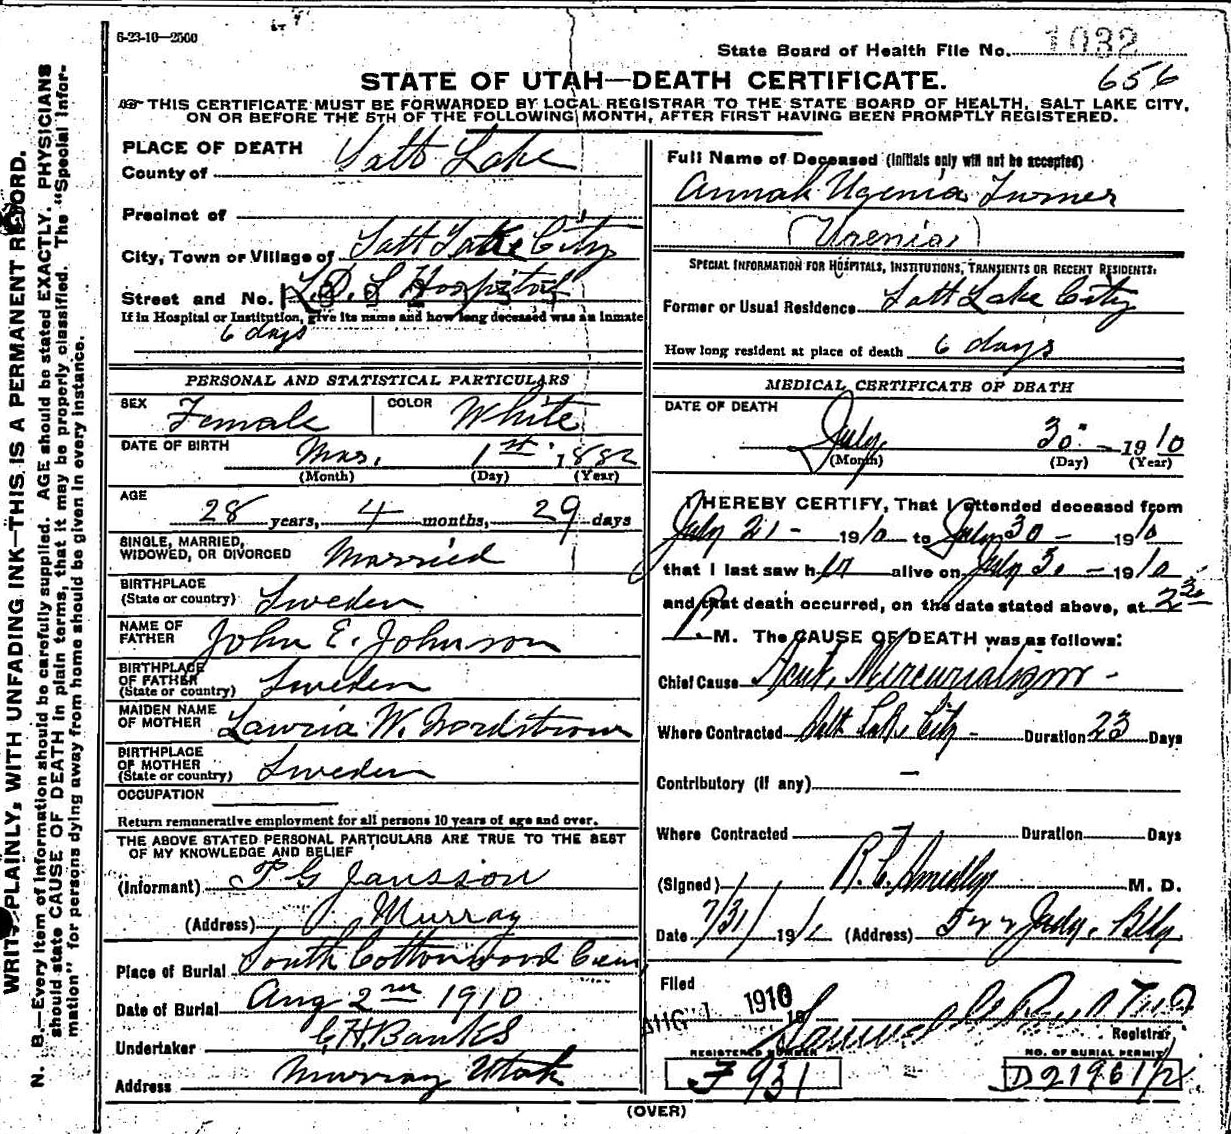 6-23-10—2500
State Board of Health File No. 1032
656
STATE OF UTAH—DEATH CERTIFICATE.
THIS CERTIFICATE MUST BE FORWARDED BY LOCAL REGISTRAR TO THE STATE BOARD OF HEALTH, SALT LAKE CITY,
ON OR BEFORE THE 5TH OF THE FOLLOWING MONTH, AFTER FIRST HAVING BEEN PROMPTLY REGISTERED.
WRITE PLAINLY, WITH UNFADING INK—THIS IS A PERMANENT RECORD.
N. B.—Every item of information should be carefully supplied. AGE should be stated EXACTLY. PHYSICIANS
should state CAUSE OF DEATH in plain terms, that it may be properly classified. The "Special Infor-
mation" for persons dying away from home should be given in every instance.
PLACE OF DEATH
County of Salt Lake
Precinct of
City, Town or Village of Salt Lake City
Street and No. L.D.S Hospital
If in Hospital or Institution, give its name and how long deceased was an inmate
6 days
PERSONAL AND STATISTICAL PARTICULARS
SEX Female COLOR White
DATE OF BIRTH Mar. 1st 1882
(Month) (Day) (Year)
AGE
28 years, 4 months, 29 days
SINGLE, MARRIED,
WIDOWED, OR DIVORCED Married
BIRTHPLACE
(State or country) Sweden
NAME OF
FATHER John E. Johnson
BIRTHPLACE
OF FATHER
(State or country) Sweden
MAIDEN NAME
OF MOTHER Lawria W. Nordstrom
BIRTHPLACE
OF MOTHER
(State or country) Sweden
OCCUPATION
Return remunerative employment for all persons 10 years of age and over.
THE ABOVE STATED PERSONAL PARTICULARS ARE TRUE TO THE BEST
OF MY KNOWLEDGE AND BELIEF
(Informant) P G Jansson
(Address) Murray
Place of Burial South Cottonwood Cem
Date of Burial Aug 2nd 1910
Undertaker G.H. Banks
Address Murray Utah
Full Name of Deceased (Initials only will not be accepted)
Annah Ugenia Turner
(Urenia)
SPECIAL INFORMATION FOR HOSPITALS, INSTITUTIONS, TRANSIENTS OR RECENT RESIDENTS:
Former or Usual Residence Salt Lake City
How long resident at place of death 6 days
MEDICAL CERTIFICATE OF DEATH
DATE OF DEATH
July 30 1910
(Month) (Day) (Year)
I HEREBY CERTIFY, That I attended deceased from
July 21 - 1910 to July 30 - 1910
that I last saw her alive on July 30 - 1910
and that death occurred, on the date stated above, at 2 30
P. M. The CAUSE OF DEATH was as follows:
Chief Cause Acute Mercurialism -
Where Contracted Salt Lake City - Duration 23 Days
Contributory (if any) —
Where Contracted Duration Days
(Signed) M. D.
Date 7/31/ 191 (Address) Judge Bldg
Filed
AUG 1 1910
Registrar
REGISTERED NUMBER
F 931
NO. OF BURIAL PERMIT
D21961/2
(OVER)